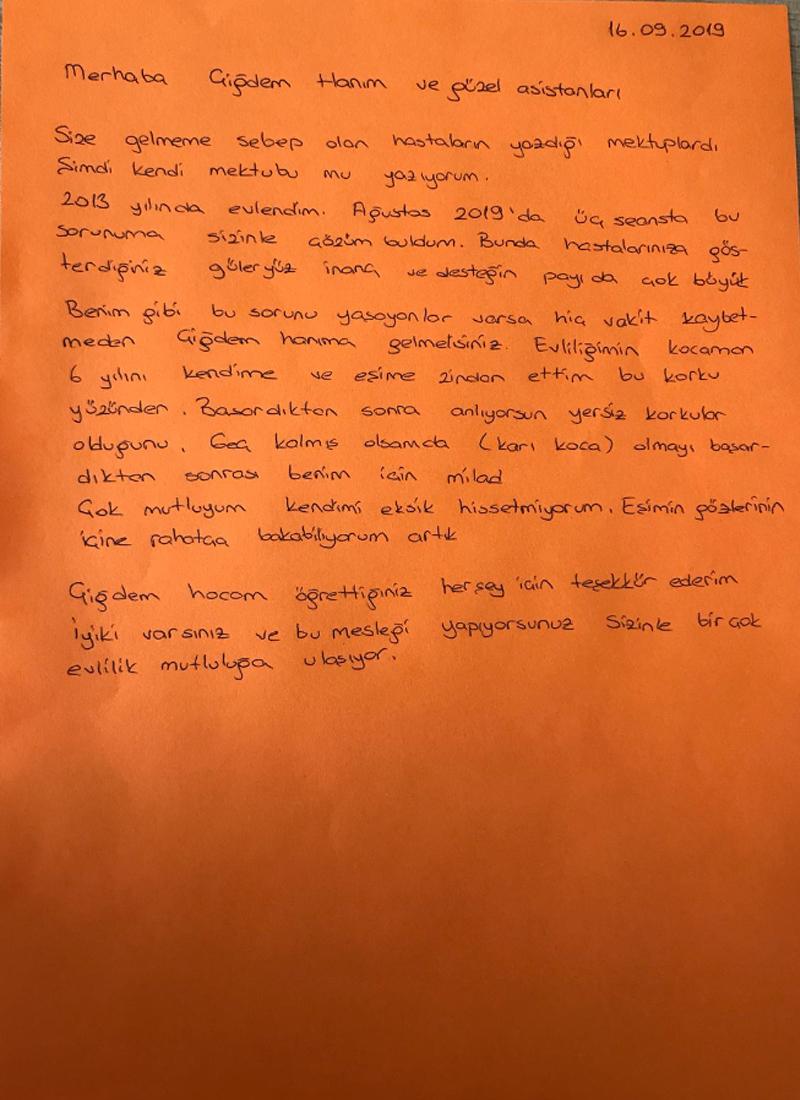 16.09.2019
Merhaba Çiğdem Hanım ve güzel asistanları
Size gelmeme sebep olan hastaların yazdığı mektuplardı
Şimdi kendi mektubu mu yazıyorum.
2013 yılında evlendim. Ağustos 2019'da üç seansta bu
sorunuma sizinle çözüm buldum. Bunda hastalarınıza gös-
terdiğiniz güleryüz inanç ve desteğin payı da çok büyük
Benim gibi bu sorunu yaşayanlar varsa hiç vakit kaybet-
meden Çiğdem hanıma gelmelsiniz. Evliliğimin kocaman
6 yılını kendime ve eşime zindan ettim bu korku
yüzünden. Başardıktan sonra anlıyorsun yersiz korkular
olduğunu. Geç kalmış olsamda (karı koca) olmayı başar-
dıktan sonrası benim için milad
Çok mutluyum kendimi eksik hissetmiyorum. Eşimin gözlerinin
içine rahatça bakabiliyorum artık
Çiğdem hocam öğrettiğiniz herşey için teşekkür ederim
İyiki varsınız ve bu mesleği yapıyorsunuz Sizinle birçok
evlilik mutluluğa ulaşıyor.